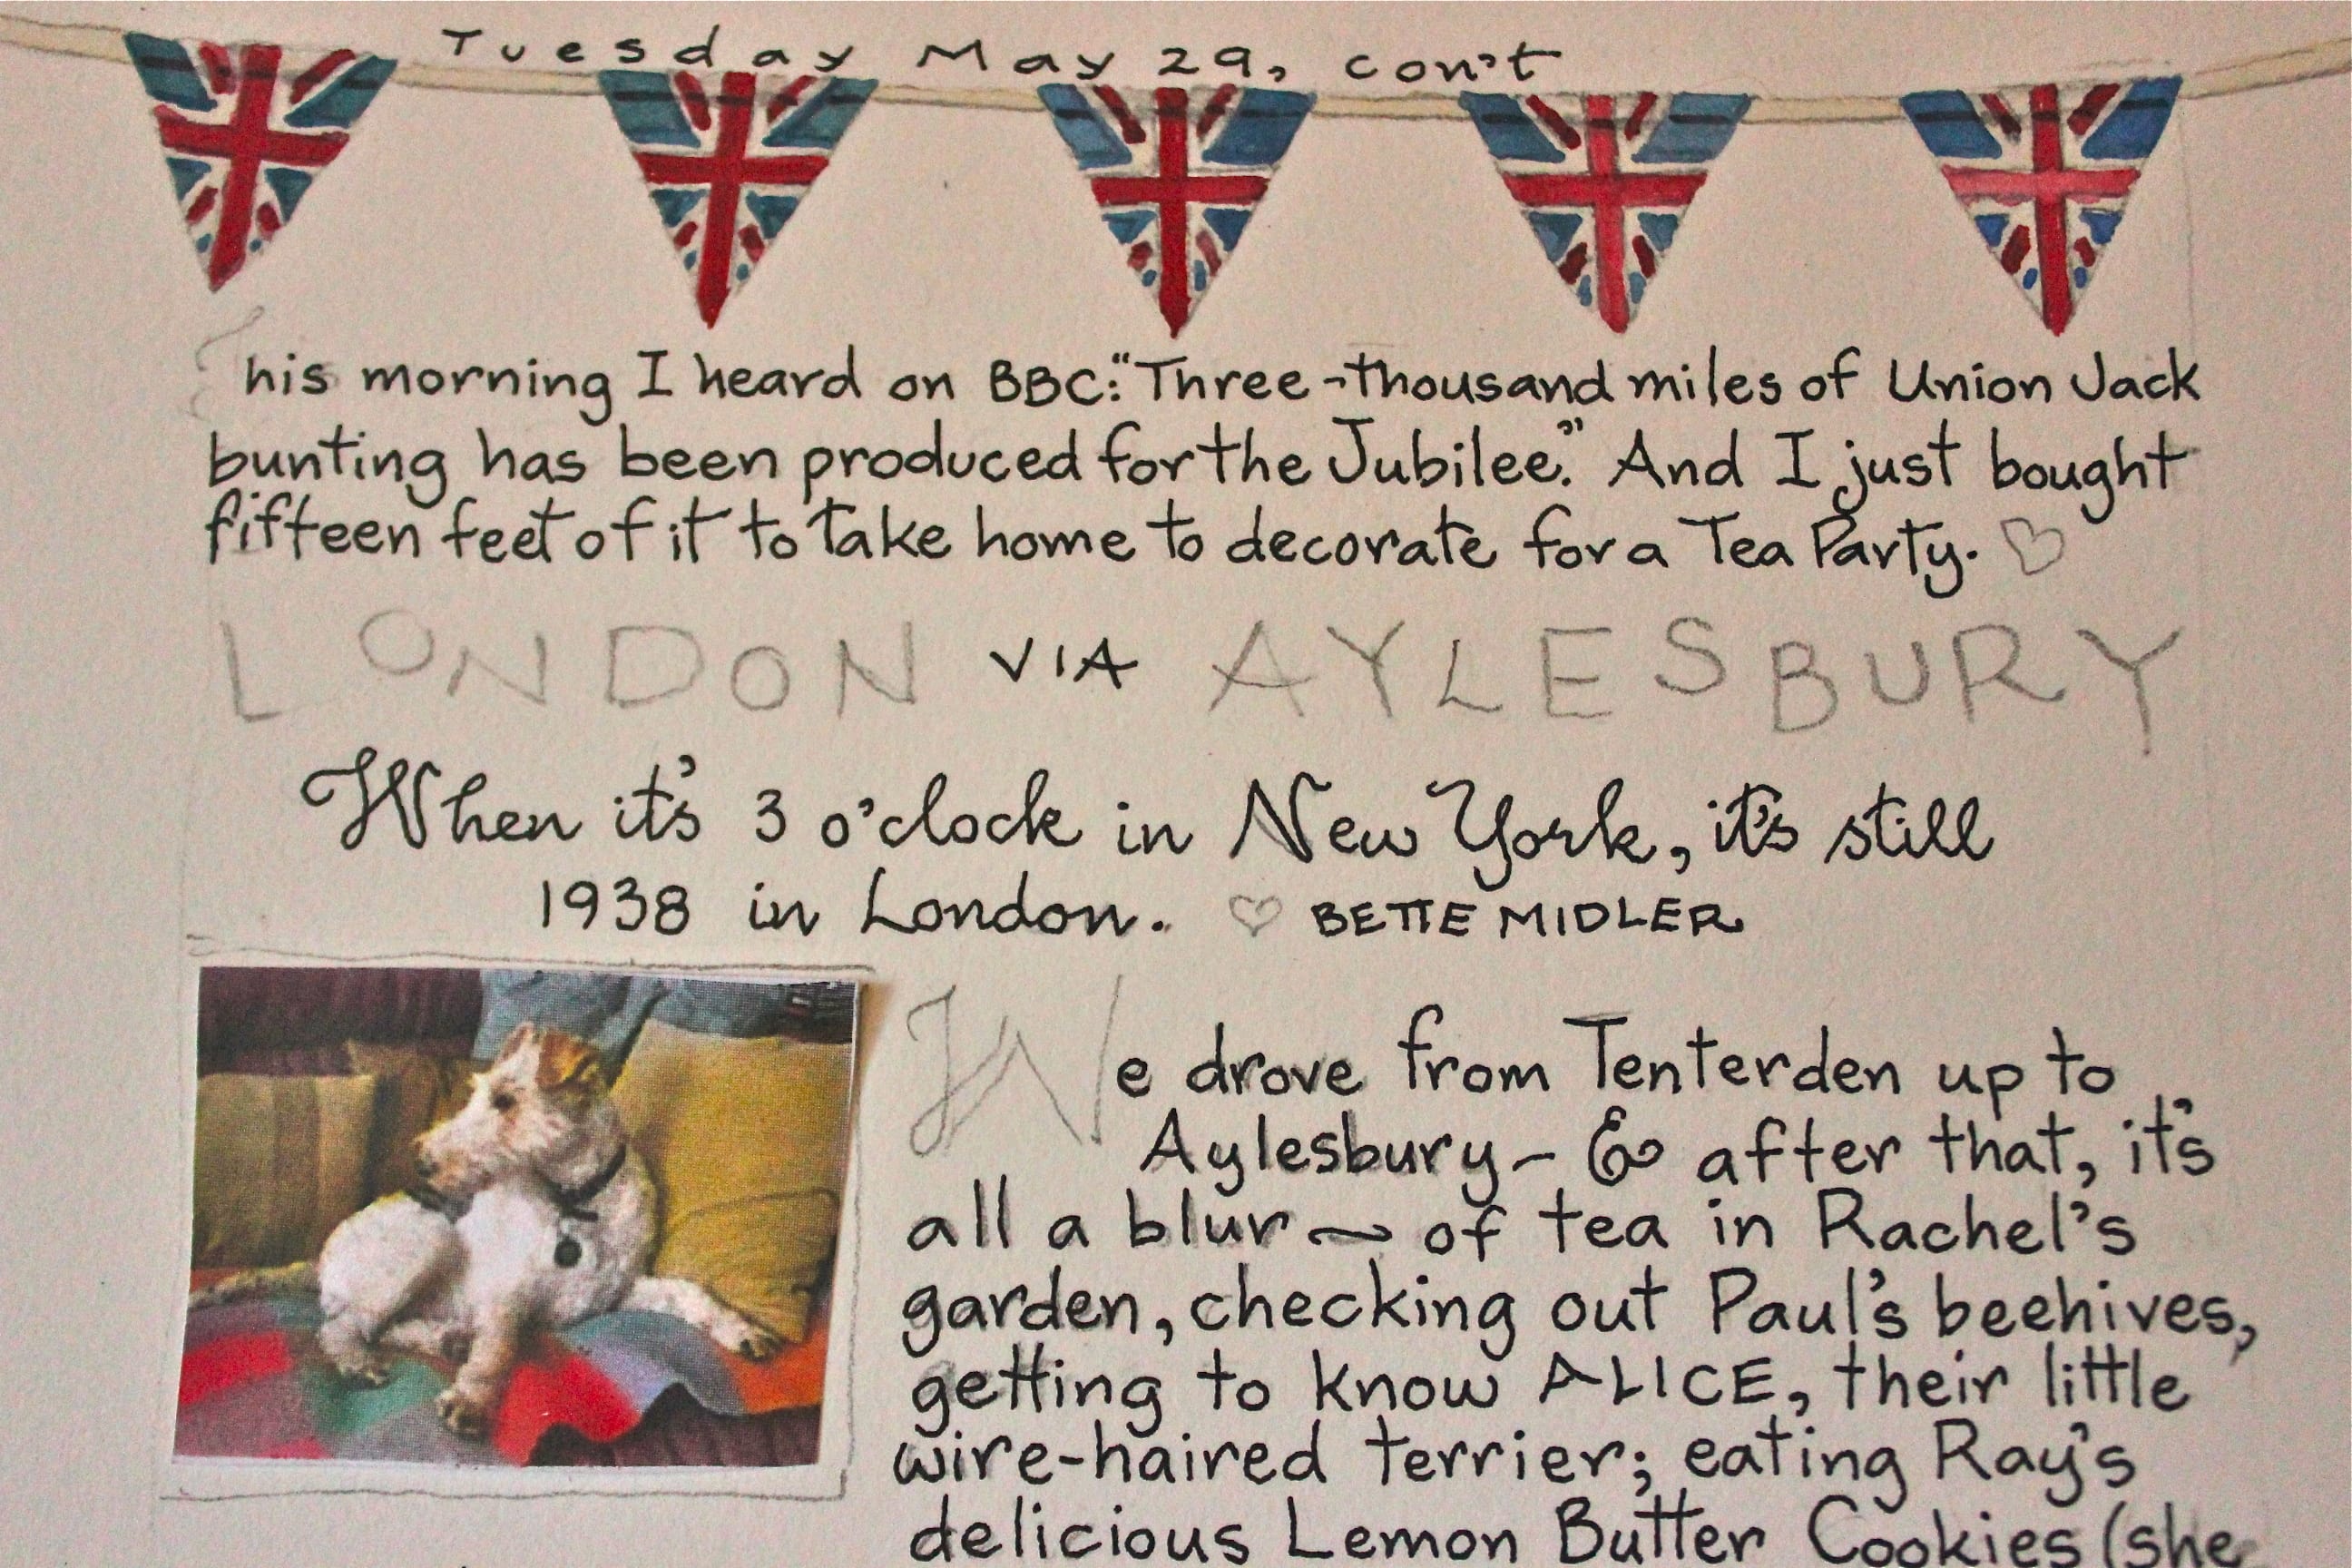 Tuesday May 29, con't
This morning I heard on BBC: "Three-thousand miles of Union Jack
bunting has been produced for the Jubilee." And I just bought
fifteen feet of it to take home to decorate for a Tea Party.
LONDON VIA AYLESBURY
When it's 3 o'clock in New York, it's still
1938 in London. BETTE MIDLER
We drove from Tenterden up to
Aylesbury - & after that, it's
all a blur ~ of tea in Rachel's
garden, checking out Paul's beehives,
getting to know ALICE, their little
wire-haired terrier; eating Ray's
delicious Lemon Butter Cookies (she